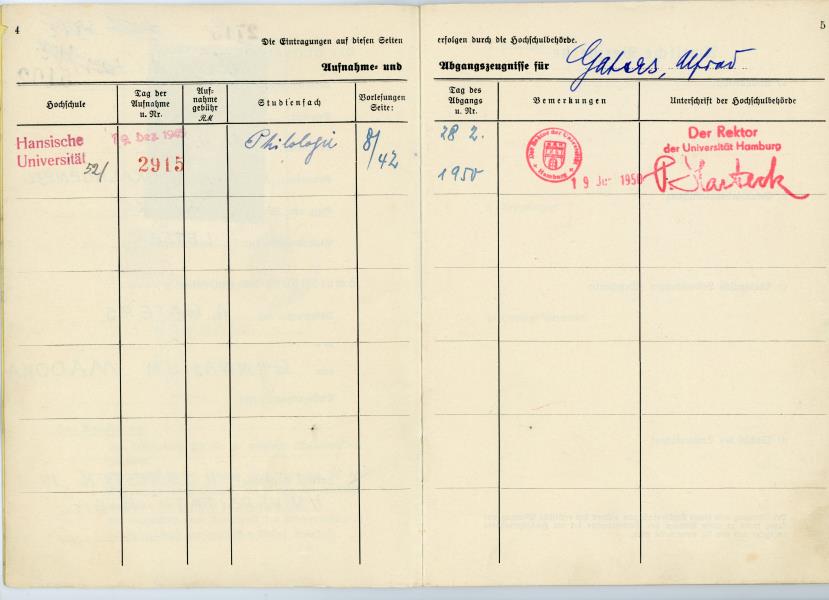 4
Die Eintragungen auf diesen Seiten
Aufnahme- und
Hochschule
Tag der
Aufnahme
u. Nr.
Auf-
nahme
gebühr
RM
Studienfach
Vorlesungen
Seite:
Hansische
Universität
52/
19. Dez. 1945
2915
Philologie
8/
42
5
erfolgen durch die Hochschulbehörde.
Abgangszeugnisse für
Gaters, Alfred
Tag des
Abgangs
u. Nr.
Bemerkungen
Unterschrift der Hochschulbehörde
28 2.
1950
Der Rektor der Universität
Hamburg
19 1950
Der Rektor
der Universität Hamburg
P. Harteck